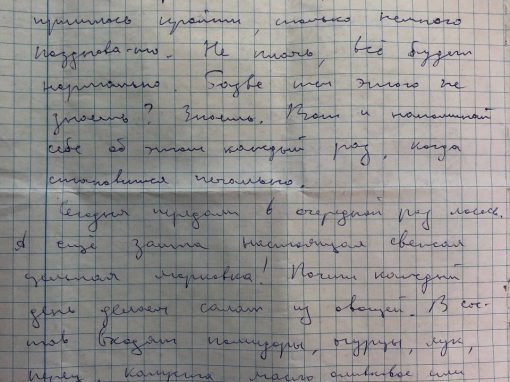 пришлось пройти, только немного
поздновато. Не плачь, всё будет
нормально. Разве ты этого не
знаешь? Знаешь. Вот и напоминай
себе об этом каждый раз, когда
становится печально.
Сегодня передали в очередной раз лосось.
А ещё зашла настоящая свежая
цельная морковка! Почти каждый
день делаем салат из овощей. В сос-
тав входят помидоры, огурцы, лук,
перец, капуста, масло оливковое или